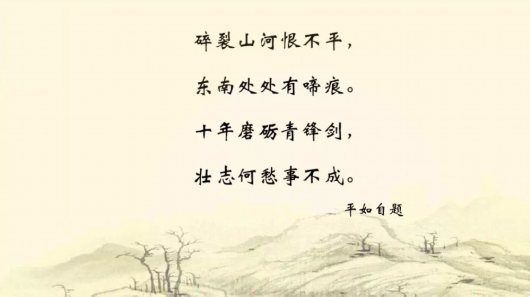 碎裂山河恨不平，
东南处处有啼痕。
十年磨砺青锋剑，
壮志何愁事不成。
平如自题